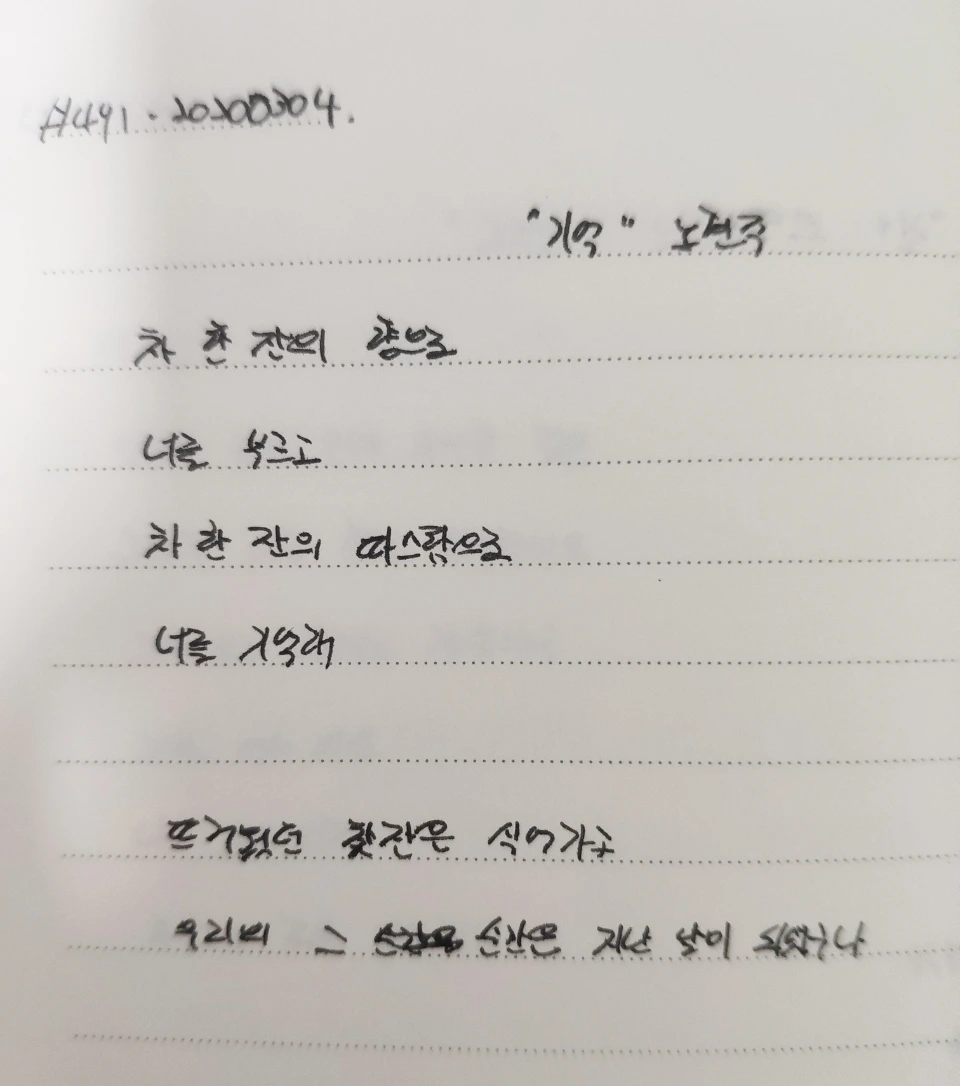 #491. 20200304.
"기억" 노현주
차 한 잔의 향으로
너를 부르고
차 한 잔의 따스함으로
너를 기억해
뜨거웠던 찻잔은 식어가고
우리의 그 순간은 지난 날이 되었구나